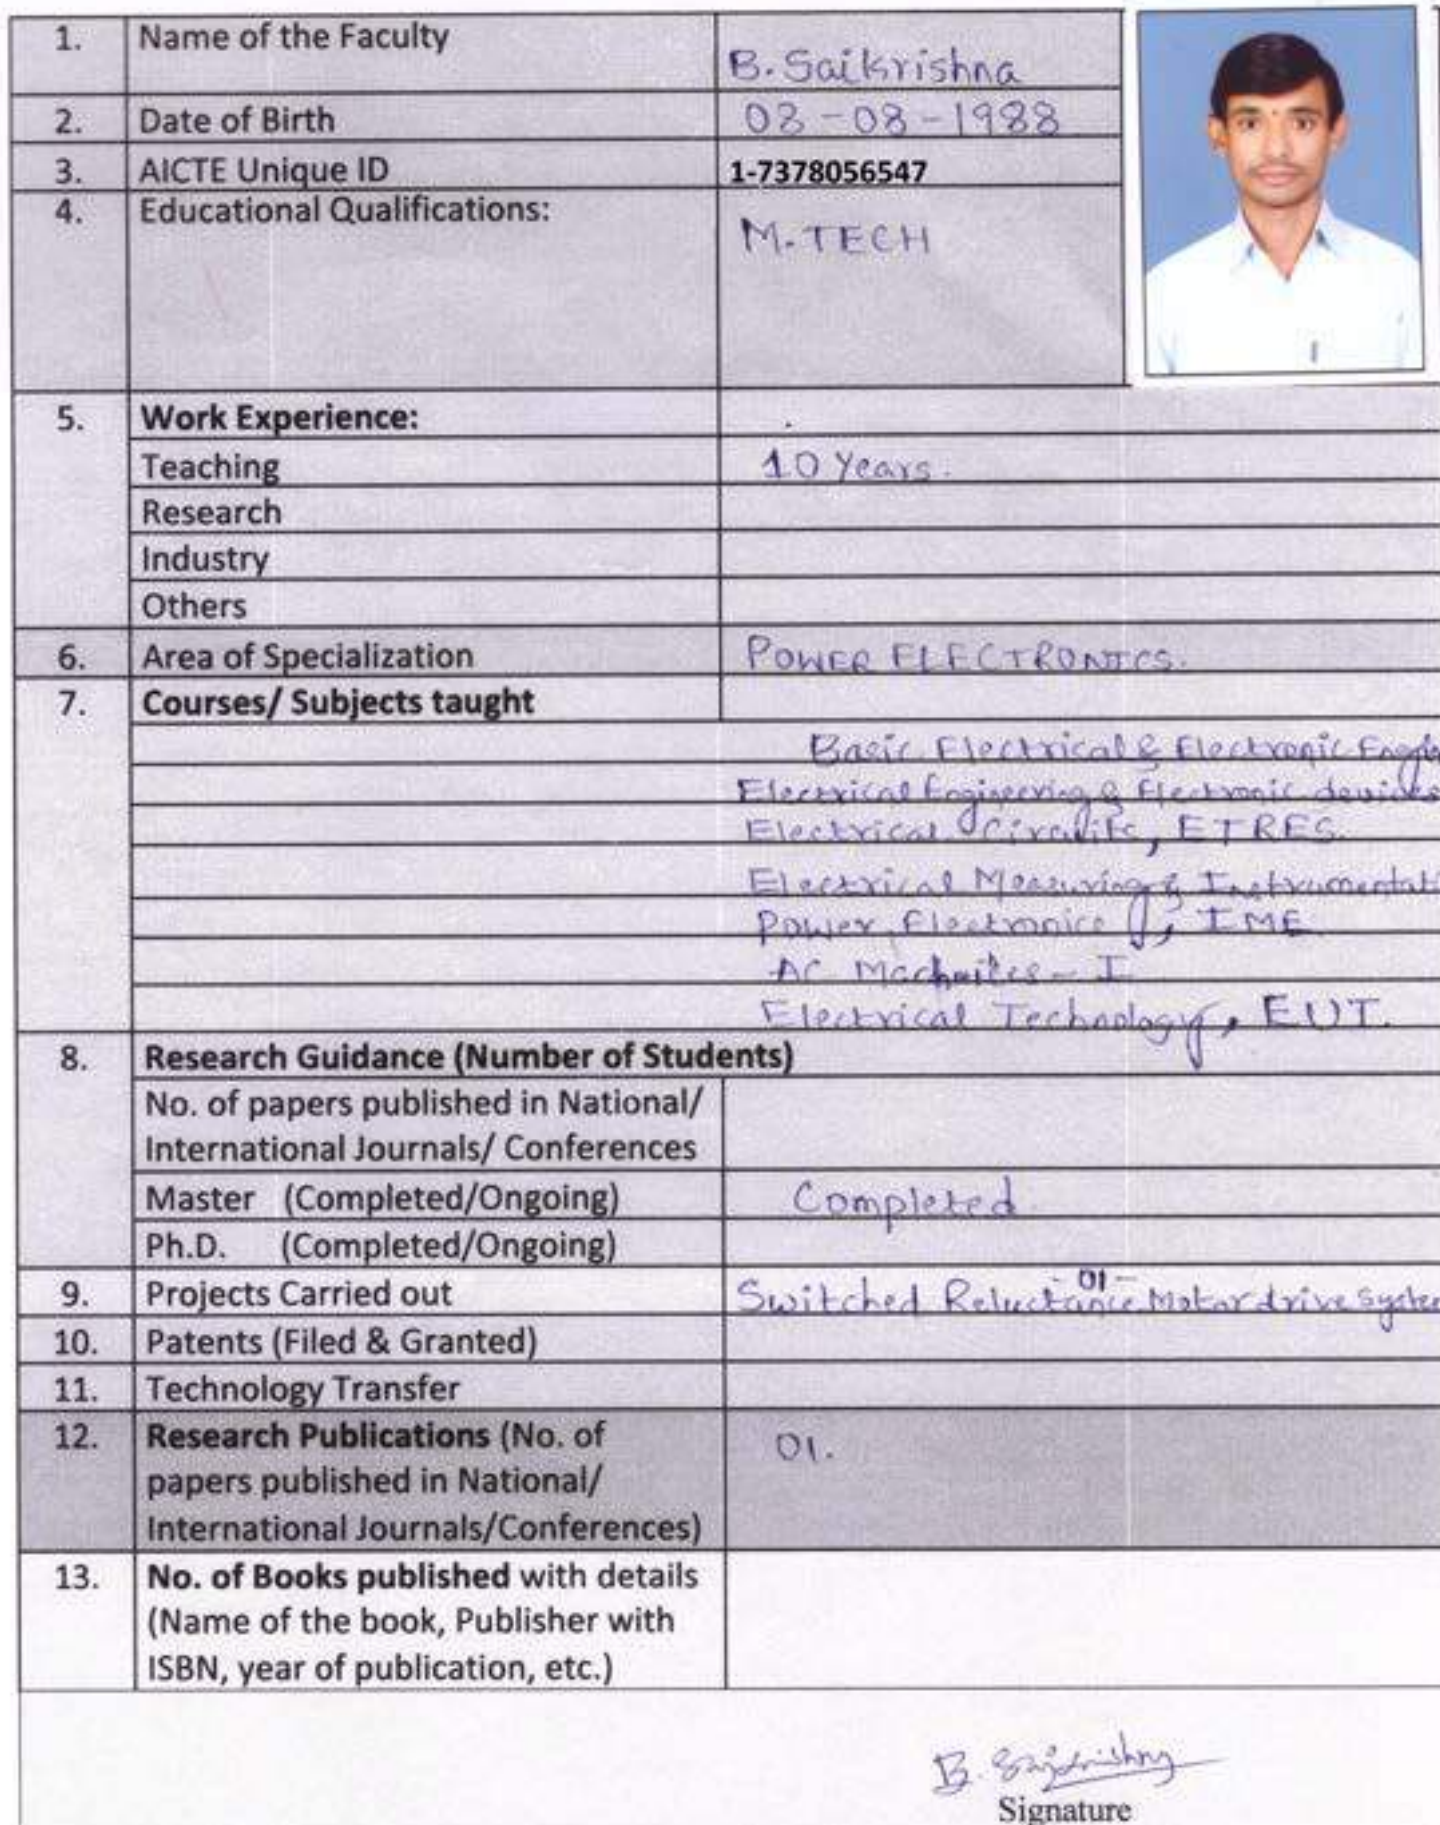 1. Name of the Faculty B. Saikrishna
2. Date of Birth 08-08-1988
3. AICTE Unique ID 1-7378056547
4. Educational Qualifications: M.TECH
5. Work Experience:
Teaching 10 Years.
Research
Industry
Others
6. Area of Specialization POWER ELECTRONICS.
7. Courses/ Subjects taught
Basic Electrical & Electronic
Electrical Engineering & Electronic devices
Electrical Circuits, ETRES.
Electrical Measuring & Instrumentati
Power Electronics, IME
AC Machines - I
Electrical Technology, EUT.
8. Research Guidance (Number of Students)
No. of papers published in National/
International Journals/ Conferences
Master (Completed/Ongoing) Completed
Ph.D. (Completed/Ongoing)
01
9. Projects Carried out Switched Reluctance Motor drive system
10. Patents (Filed & Granted)
11. Technology Transfer
12. Research Publications (No. of 01.
papers published in National/
International Journals/Conferences)
13. No. of Books published with details
(Name of the book, Publisher with
ISBN, year of publication, etc.)
B. Saikrishna
Signature